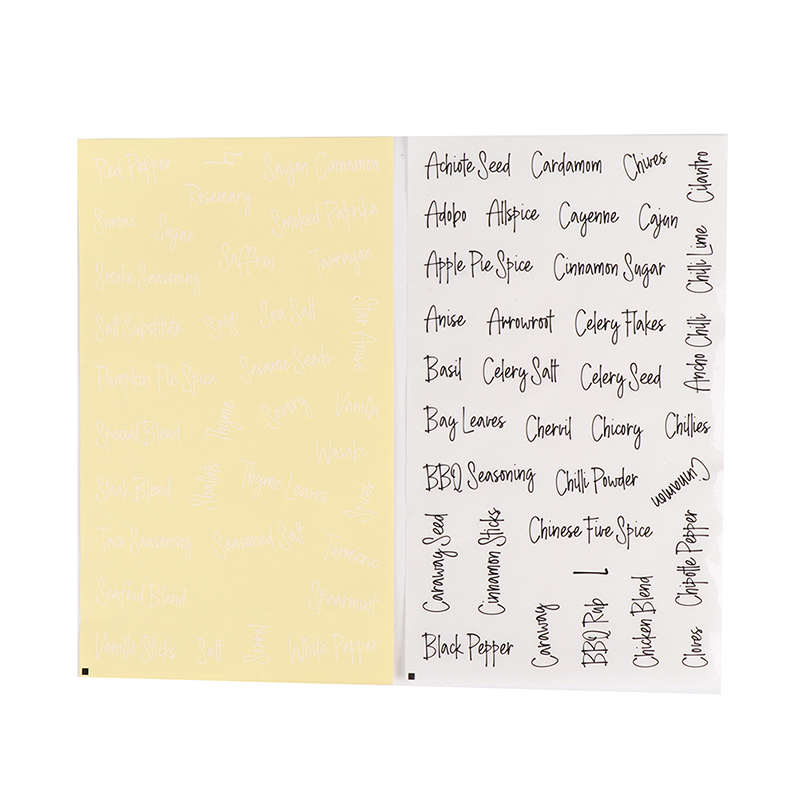 Red Pepper
Saigon Cinnamon
Rosemary
Smoked Paprika
Sumac
Sugar
Saffron
Tarragon
Smoke Seasoning
Star Anise
Salt Substitute
Sage
Sea Salt
Sesame Seeds
Pumpkin Pie Spice
Savory
Vanilla
Thyme
Special Blend
Wasabi
Steak Blend
Thyme Leaves
Taco Seasoning
Seasoned Salt
Turmeric
Seafood Blend
Spearmint
Vanilla Sticks
Salt
White Pepper
Achiote Seed Cardamom Chives Cilantro
Adobo Allspice Cayenne Cajun
Apple Pie Spice Cinnamon Sugar Chilli Lime
Anise Arrowroot Celery Flakes Ancho Chilli
Basil Celery Salt Celery Seed
Bay Leaves Chervil Chicory Chillies
BBQ Seasoning Chilli Powder Cinnamon
Caraway Seed Cinnamon Sticks Chinese Five Spice Chipotle Pepper
L
Black Pepper Caraway BBQ Rub Chicken Blend Cloves